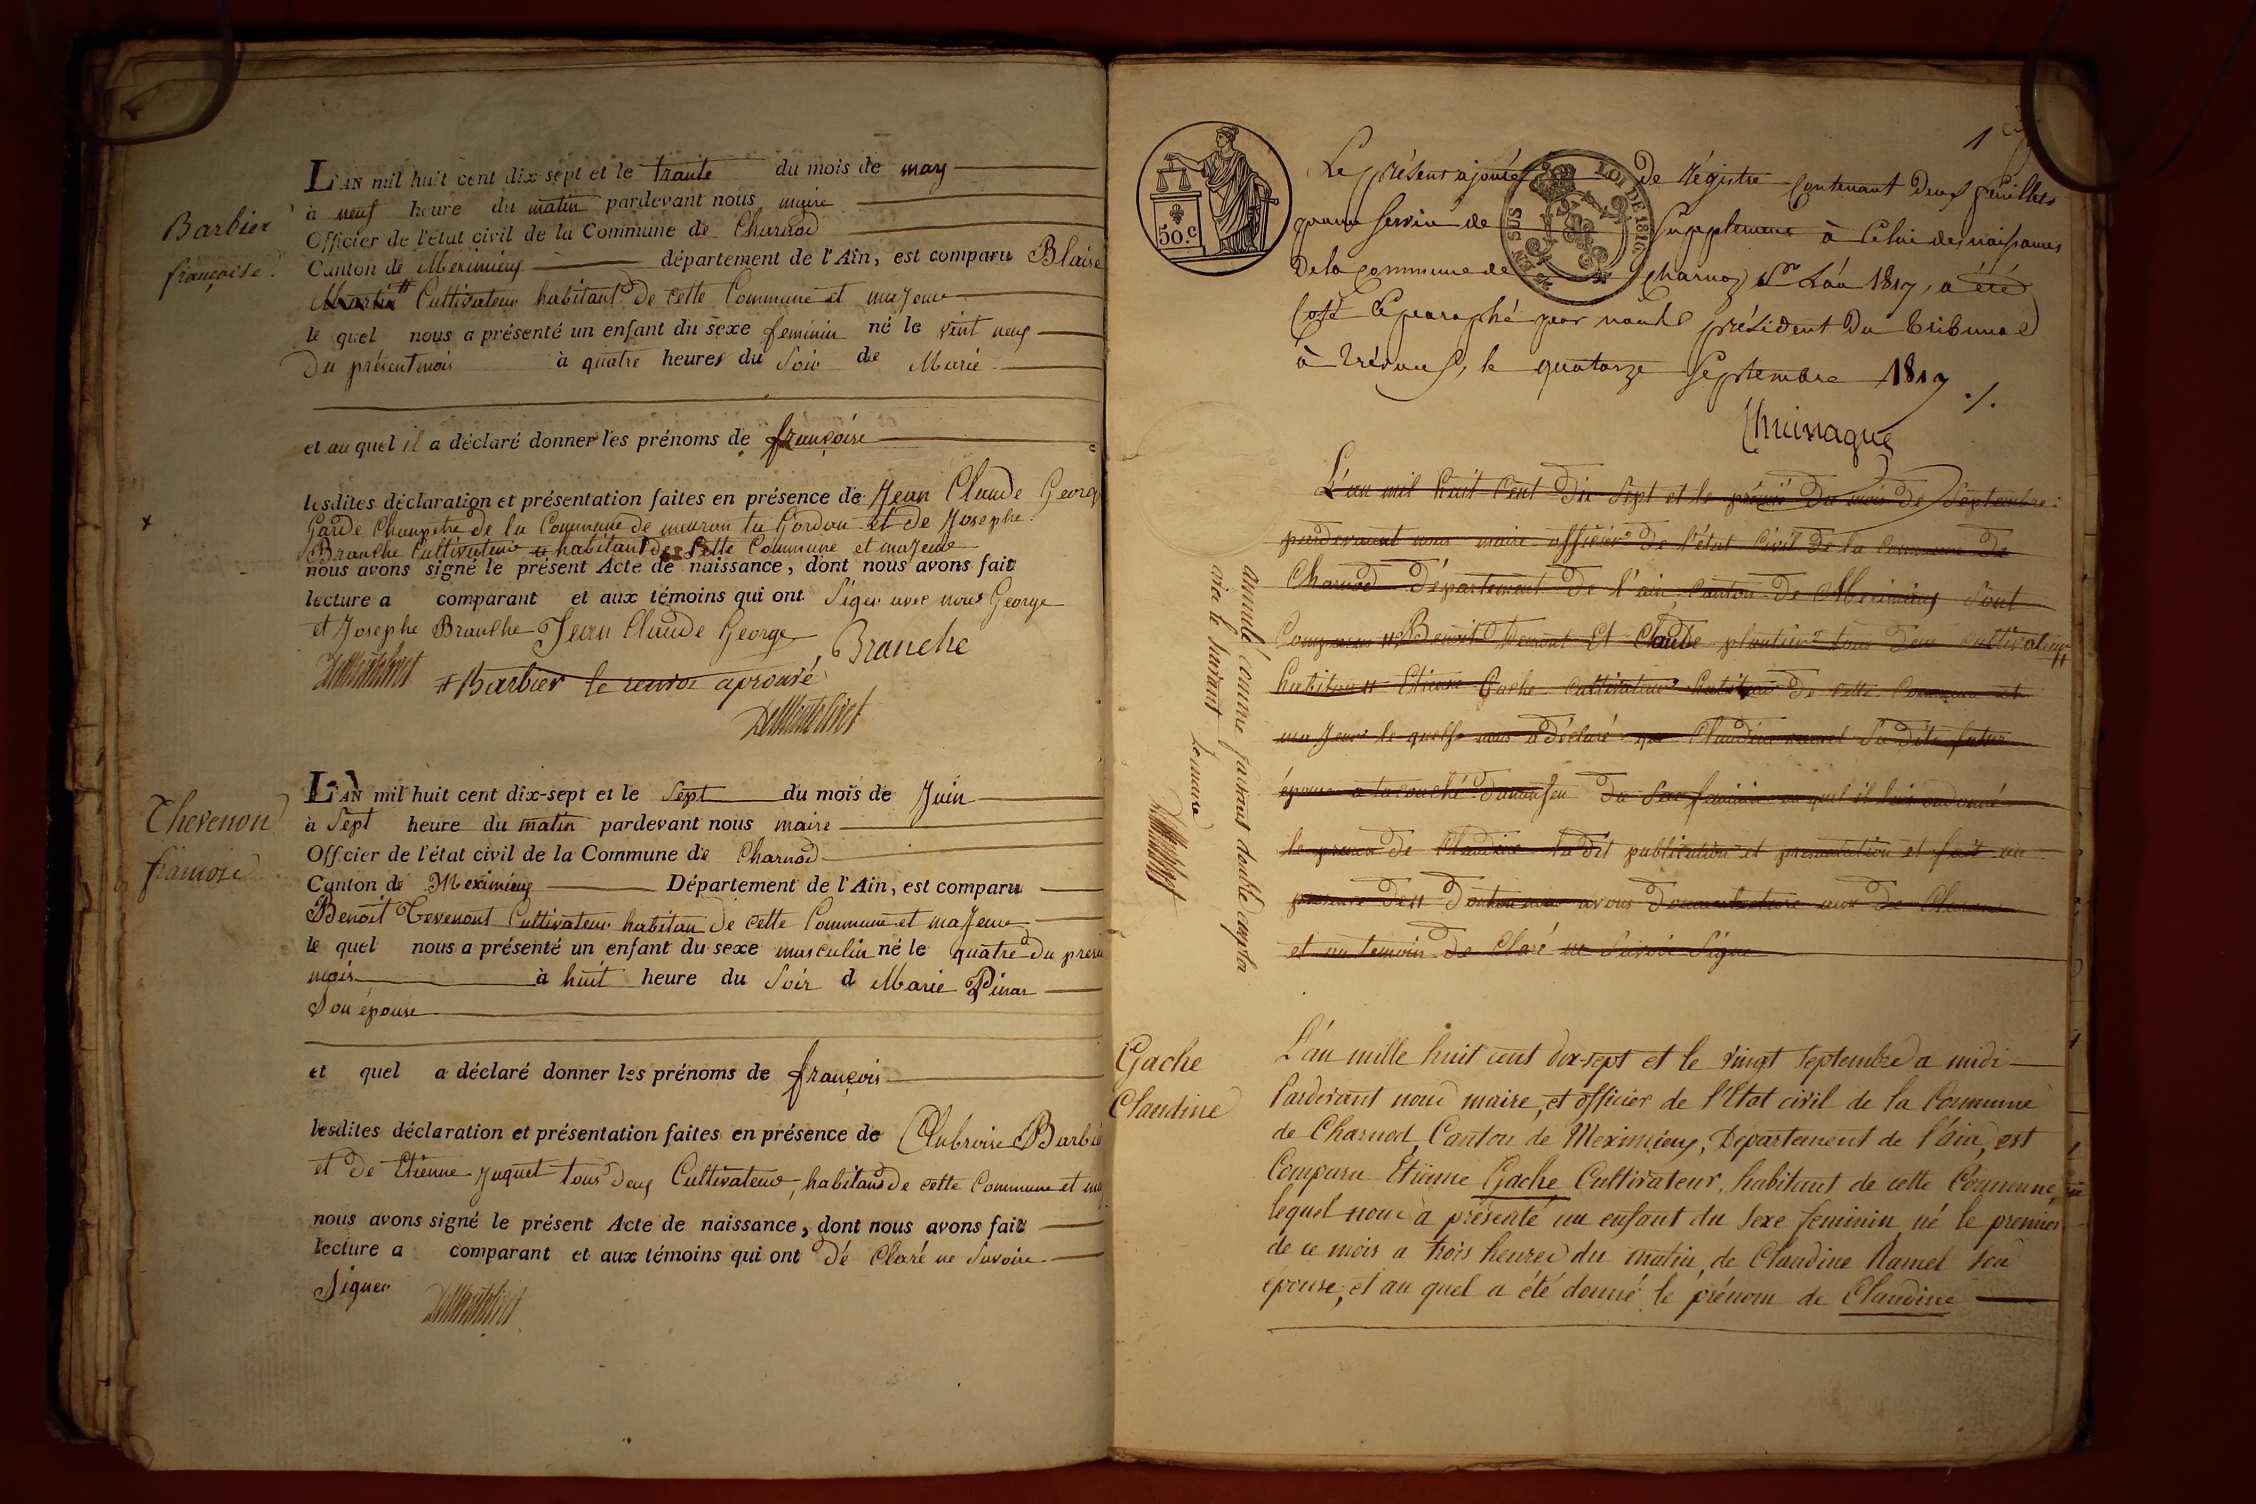 Barbier
françoise.
L'AN mil huit cent dix-sept et le trante du mois de may
à neuf heure du matin pardevant nous maire
Officier de l'état civil de la Commune de Charnod
Canton de Meximieux département de l'Ain, est comparu Blaise
Cultivateur habitant de cette Commune et majeur
le quel nous a présenté un enfant du sexe feminin né le vint neuf
Du présent mois à quatre heures du Soir de Marie
et au quel il a déclaré donner les prénoms de françoise
lesdites déclaration et présentation faites en présence de Jean Claude George
Garde Champetre de la Commune de et de Josephe
Branche Cultivateur habitant de Cette Commune et majeur
nous avons signé le présent Acte de naissance, dont nous avons fait
lecture a comparant et aux témoins qui ont Signer avec nous George
et Josephe Branche Jean Claude George Branche
# Barbier le renvoi aprouvé
Thevenon
françois
L'AN mil huit cent dix-sept et le Sept du mois de Juin
à Sept heure du matin pardevant nous maire
Officier de l'état civil de la Commune de Charnod
Canton de Meximieux Département de l'Ain, est comparu
Benoit Tevenont Cultivateur habitan de cette Commune et majeur
le quel nous a présenté un enfant du sexe masculin né le quatre du présen
mois à huit heure du Soir d Marie
Son épouse
et quel a déclaré donner les prénoms de françois
lesdites déclaration et présentation faites en présence de Barbie
et de Etienne Juquet tous deux Cultivateur, habitans de cette Commune et maj
nous avons signé le présent Acte de naissance, dont nous avons fait
lecture a comparant et aux témoins qui ont Dé Claré ne Savoire
Signer
1er
50.c
EN SUS
LOI DE 1816
Le présent ajouté de Régistre Contenant Deux feuilles
pour Servir de Supplement à Celui des naissances
De la Commune de Charnoz pr L'án 1817, a été
Coté & paraphé par nous président Du tribunal
à Trévoux, le quatorze Septembre 1817 ./.
L'an mil huit Cent Dix Sept et le premier Du mois de Septembre
pardevant nous maire officier De l'état Civil De la Commune De
Charnod Département De l'ain, Canton De Meximieux Sont
Comparus Benoit Et Claude plantier tous deux cultivateur
habitan Etienne Gache Cultivateur habitan De Cette Commune et
majeur le quel nous a Déclaré que Claudine
épouse a Du Sexe feminin au quel il
le prenom De Claudine publication et presentation et fait en
presence De nous avons Donné lecture
et au temoin De Claré ne Savoir Signer
annulé comme faisant double emploi
avec le suivant Le maire
Gache
Claudine
L'án mille huit cent dix-sept et le vingt septembre a midi
Pardevant nous maire, et officier de l'Etat civil de la Commune
de Charnod, Canton de Meximieux, Département de l'Ain, est
Comparu Etienne Gache Cultivateur, habitant de cette Commune,
lequel nous a présenté un enfant du Sexe feminin, né le premier
de ce mois a trois heures du matin, de Claudine Ramel son
épouse, et au quel a été donné le prénom de Claudine